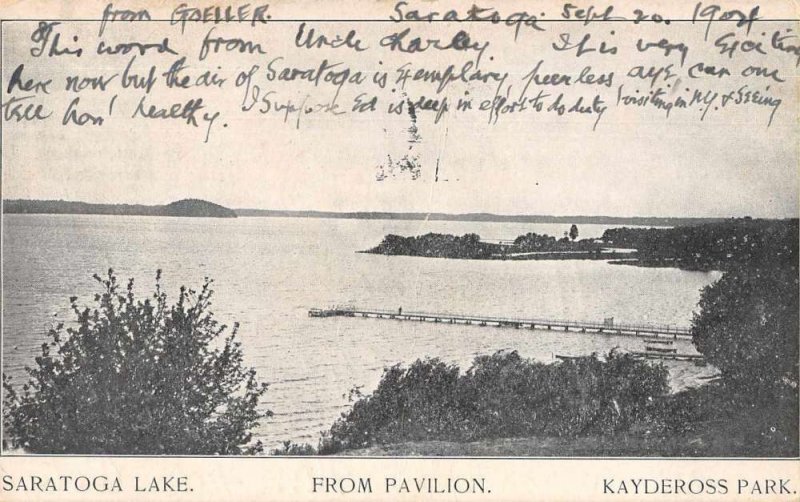 from GOELLER. Saratoga Sept 20. 1904
This word from Uncle Charley. It is very Exciting
here now but the air of Saratoga is Exemplary, peerless aye, can one
tell how healthy. I Suppose Ed is deep in efforts to do duty visiting in NY. & Seeing
SARATOGA LAKE. FROM PAVILION. KAYDEROSS PARK.